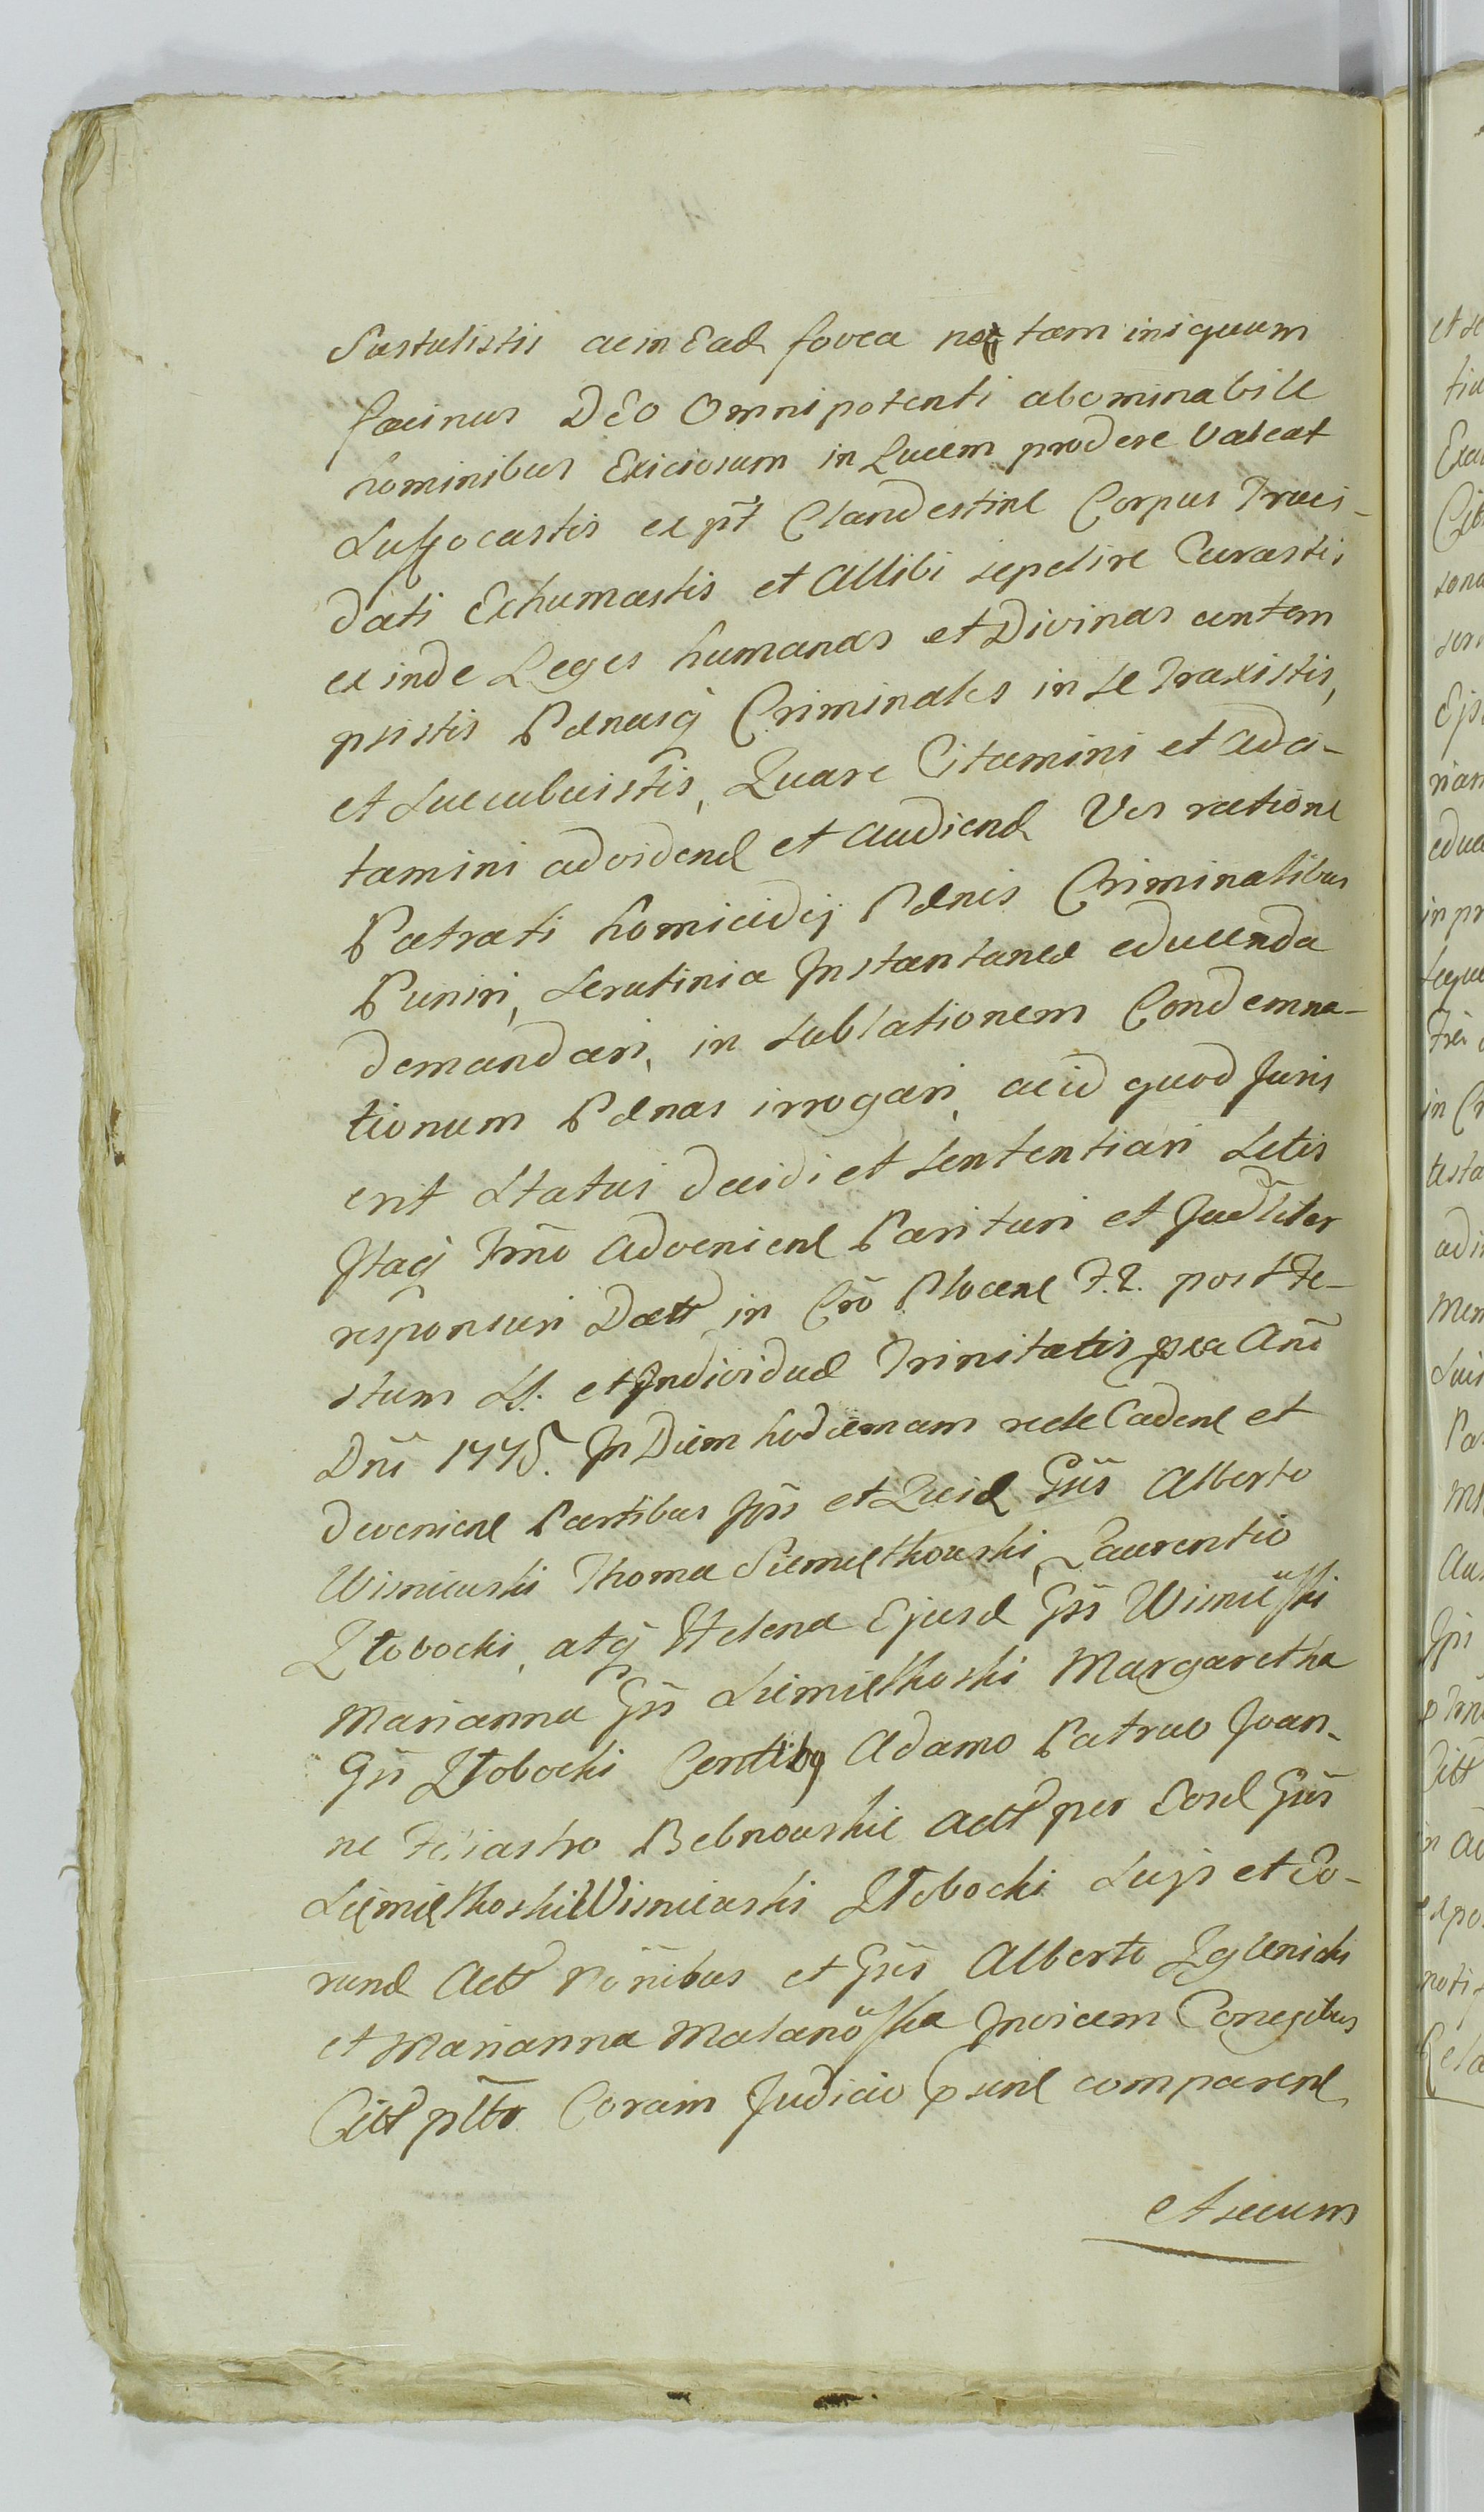 Sustulistis ac in Ead fovea ne tam iniquum
facinus Dēo Omnipotenti abominabile
hominibus Exiciosum in Lucem prodere Valeat
Suffocastis ex pt̄ Clandestine Corpus Truci-
dati Exhumastis et Allibi sepelire Curastis
exinde Leges humanas et Divinas contem
psistis Pænasq Criminales in se Traxistis,
et Succubuistis, Quare Citamini et adci-
tamini ad vidend et audiend Vos ratione
Patrati homicidij Pænis Criminalibus
Puniri, Scrutinia Instantanea educenda
demandari, in sublationem Condemna-
tionum Pænas irrogari, ac id quod Juris
erit Status decidi et Sententiari Sitis
Itaq Trno advenien Parituri et Judliter
responsuri Datt in Cro Plocen F. 2. post Fe-
stum SS. et Individuæ Trinitatis pxa Ano
Dni 1775. In Diem hodiernam recte Caden et
devenien Partibus Ipis et Quid Gsis Alberto
Wisniewski Thoma Siemiętkowski, Laurentio
Złobocki, atq Helena Ejusd Gsi Wisniewski
Marianna Gsi Siemiętkoski Margaretha
Gsi Złobocki Contibq Adamo Patruo Joan-
ne Filiastro Bebnowskie Actt per Eosd Gses
Siemiętkoski Wisniewski Złobocki Suis et Eo-
rund Actt Noibus et Gsis Alberto Zglenicki
et Marianna Malanoska Invicem Conegibus
Citt pltr Coram Judicio psent comparen
et secum